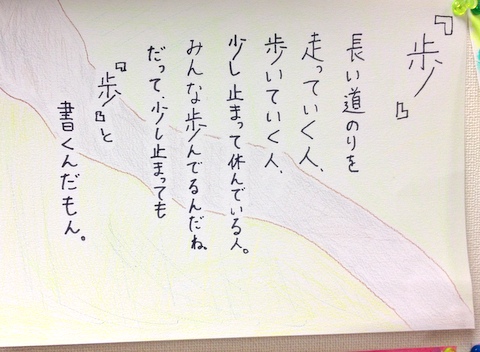 『歩』
長い道のりを
走っていく人、
歩いていく人、
少し止まって休んでいる人。
みんな歩んでるんだね。
だって、少し止まっても
『歩』と
書くんだもん。